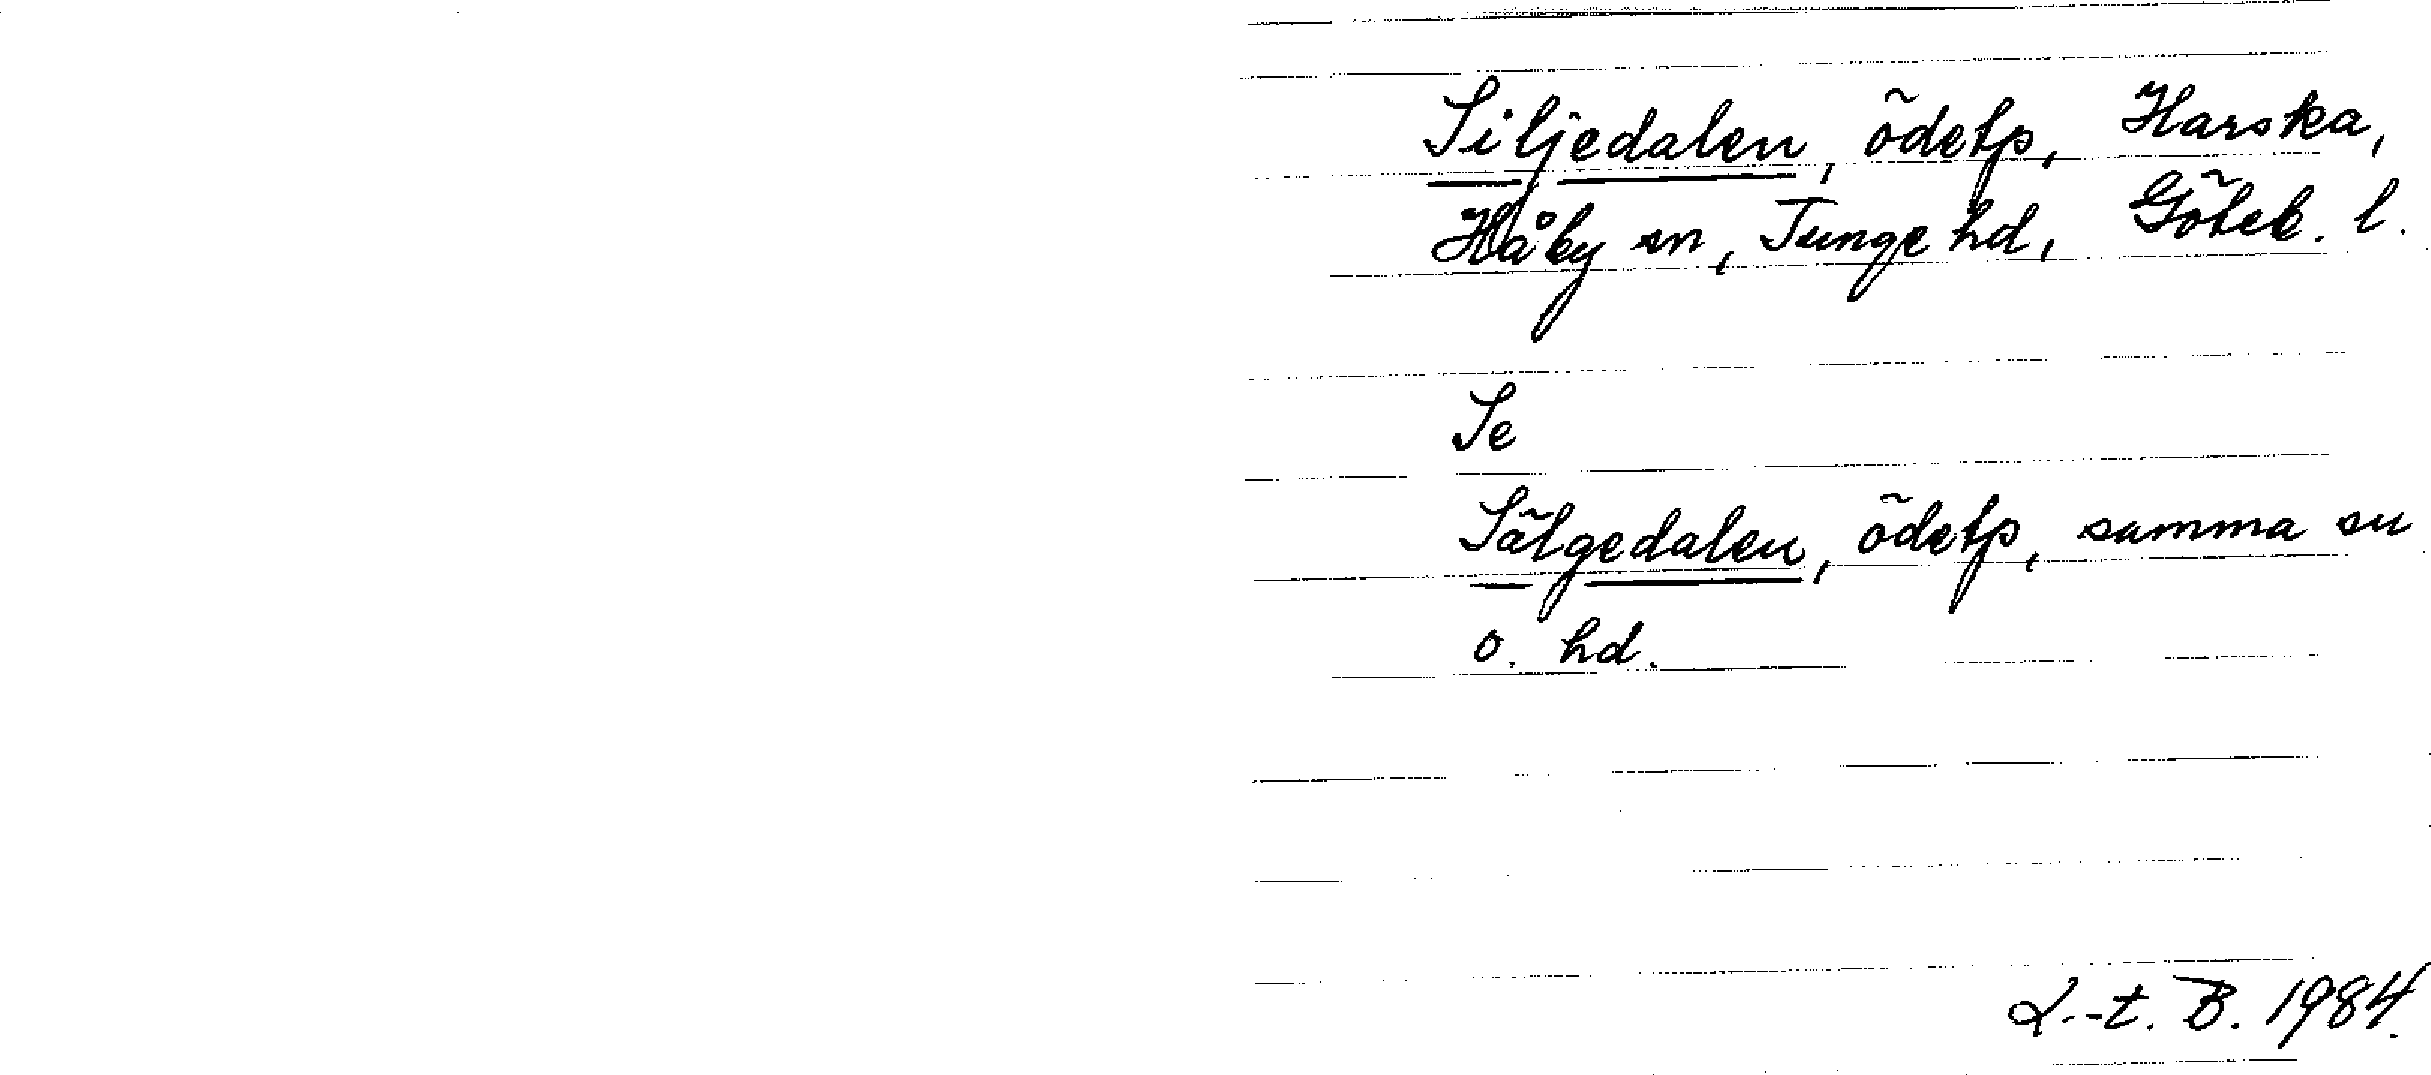 Siljedalen, ödetp, Harska,
Håby sn, Tunge hd, Göteb. l.
Se
Sälgedalen, ödetp, samma sn
o. hd.
L.-t. B. 1984.